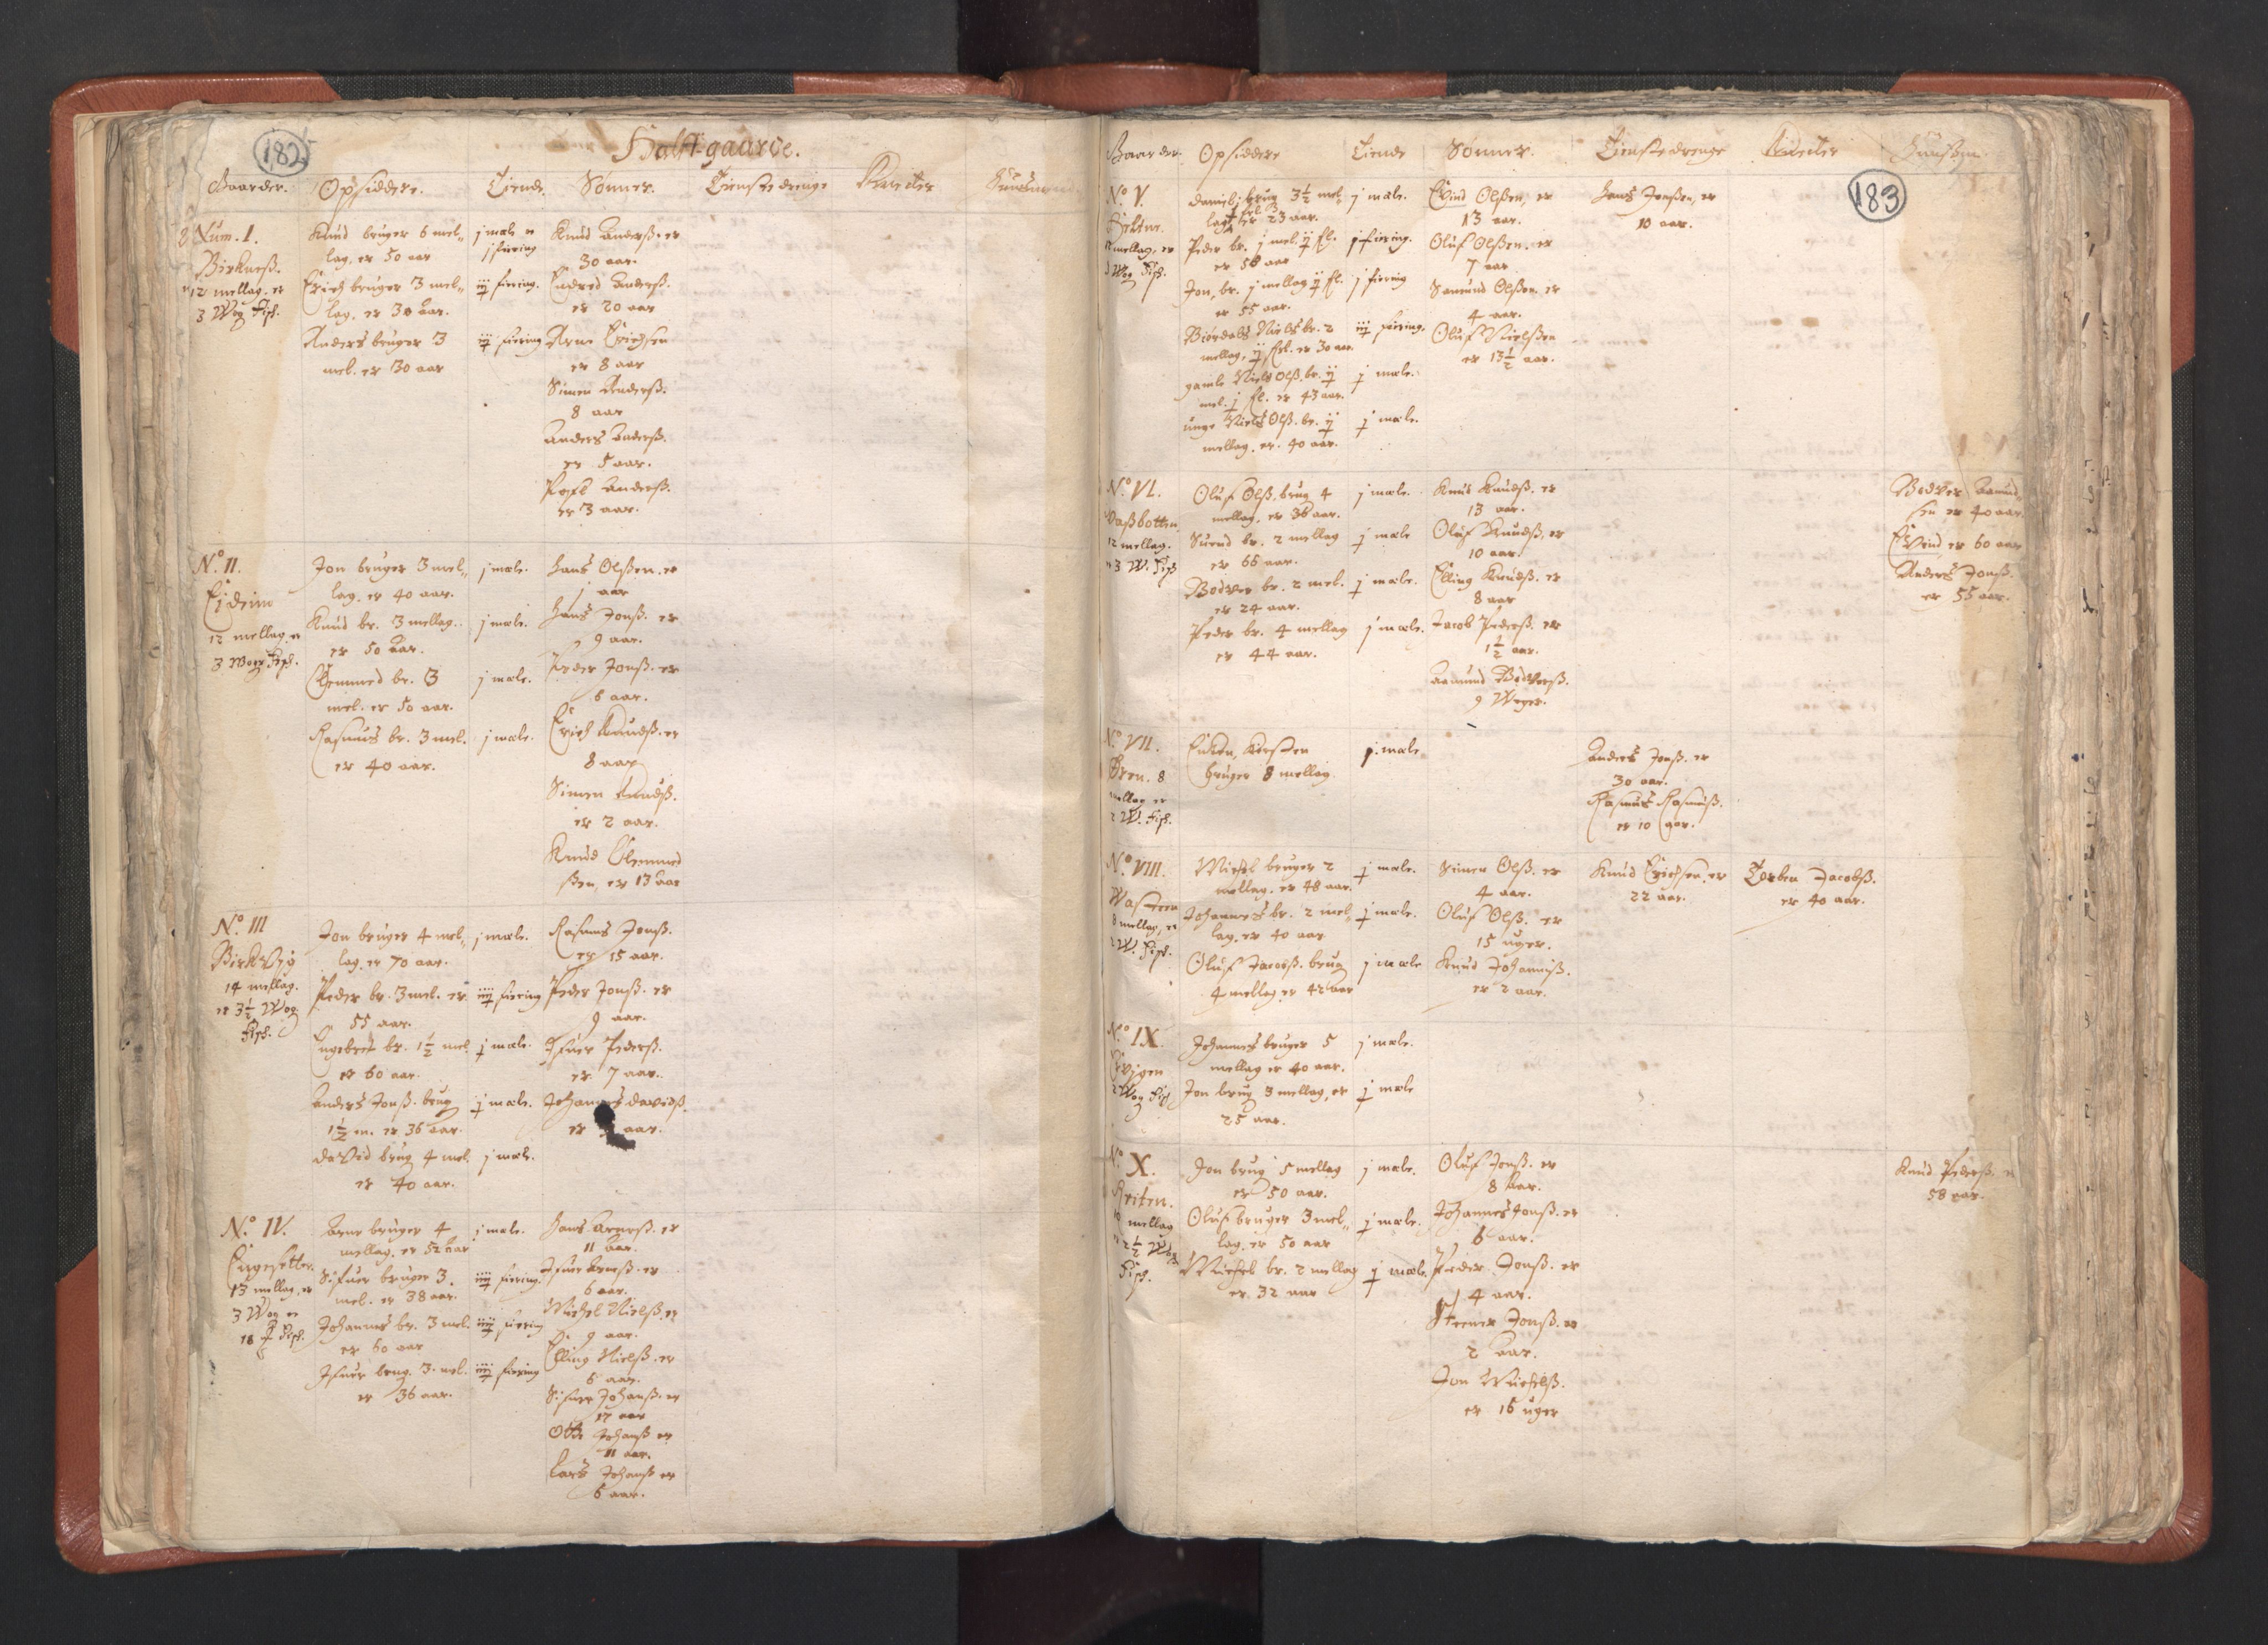 182
Gaarder. Opsiddere. Tiende. Sønner. Tienstedrenge Knecter
Num. I.
Birkneß.
12 mellag. er
3 Wog Fisk.
Knud bruger 6 mel„
lag, er 50 aar
Erich bruger 3 mel„
lag. er 30 aar.
Anders bruger 3
mel. er 30 aar
j mæle er
j fiering
iij fiering.
iij fiering
Knud Anderß. er
30 aar.
Endred Anderß.
er 20 aar
Arne Erichsen
er 8 aar
Simen Anderß.
8 aar
Anders Anderß.
er 5 aar.
Pofl Anderß.
er 3 aar.
N.o II.
Eideim
12 mellag er
3 Woger Fisk.
Jon bruger 3 mel„
lag. er 40 aar.
Knud br. 3 mellag.
er 50 aar.
Clemmed br. 3
mel. er 50 aar.
Rasmus br. 3 mel.
er 40 aar.
j mæle.
j mæle.
j mæle.
j mæle.
Hans Olßen. er
j aar
Hans Jonß. er
9 aar.
Peder Jonß. er
6 aar.
Erich Knudß. er
8 aar
Simen Knudß.
er 2 aar.
Knud Clemmed
ßen, er 13 aar
N.o III
Birkevig
14 mellag.
er 3½ Wog
Fisk.
Jon bruger 4 mel„
lag. er 70 aar.
Peder br. 3 mel. er
55 aar.
Engebret br. 1½ mel
er 60 aar.
Anders Jonß. brug
1½ m. er 36 aar.
David brug 4 mel.
er 40 aar.
j mæle.
iiij fiering
j mæle.
j mæle.
j mæle.
Rasmus Jonß.
er 15 aar.
Peder Jonß. er
9 aar.
Ifuer Pederß.
er 7 aar.
Johannes Davidß.
er aar.
N.o IV.
Engesetter.
13 mellag, er
3 Wog er
18 Fisk.
Arne bruger 4
mellag, er 52 aar
Sifuer bruger 3.
mel. er 38 aar.
Johannes br. 3 mel.
er 60 aar
Ifuer brug. 3. mel.
er 36 aar.
j mæle.
iiij fiering.
iiij fiering
iiij fiering
Hans Arneß. er
11 aar.
Ifuer Arneß. er
6 aar.
Michel Nielß. er
9 aar.
Elling Nielß. er
6 aar.
Sifuer Johanß. er
17 aar
Otte Johanß er
11 aar.
Lars Johanß er
6 aar.
183
Gaarder. Opsiddere Tiende Sønner. Tienstedrenge Knecter
N.o V.
mellag. er
Wog Fisk.
Daniel brug 3½ mel„
lag er 23 aar.
Peder br. j mel. ij fl.
er 50 aar
Jon, br. j mellag ij fl.
er 55 aar.
Biördals Niels br. 2
mellag, ij fl. er 30 aar.
gamle Niels Olß. br. ij
mel. j fl. er 43 aar.
unge Niels Olß. br. ij
mellag. er. 40 aar.
j mæle.
j fiering.
j fiering
iij fiering.
j mæle.
j mæle.
Evind Olßen, er
13 aar.
Oluf Olßen. er
7 aar
Samund Olßen. er
4 aar.
Oluf Nielßen
er 13½ aar.
Hans Jonßen, er
10 aar.
N.o VI.
Vaßbotten
12 mellag.
er 3 W. Fisk
Oluf Olß. brug 4
mellag, er 36 aar.
Suend br. 2 mellag
er 66 aar.
Bodver br. 2 mel.
er 24 aar.
Peder br. 4 mellag
er 44 aar.
j mæle.
j mæle
j mæle.
j mæle.
Knud Knudß. er
13 aar.
Oluf Knudß. er
10 aar.
Elling Knudß. er
8 aar
Jacob Pederß. er
1½ aar.
Aamund Bodverß.
9 Uger.
Bodver Aamund„
ßen er 40 aar
Evind er 60 aar
Anders Jonß.
er 55 aar.
N.o VII.
Øren. 8
mellag er
2 W. Fisk.
Enken, Kirsten
bruger 8 mellag.
j. mæle
Anders Jonß. er
30 aar.
Rasmus Rasmusß.
er 10 aar.
N.o VIII.
8 mellag, er
2 W. Fisk.
Michel bruger 2
mellag. er 48 aar.
Johannes br. 2 mel„
lag. er 40 aar
Oluf Jacobß. brug
4 mellag er 42 aar
j mæle.
j mæle.
j mæle
Simen Olß. er
4 aar.
Oluf Olß. er
15 uger.
Knud Johanniß.
er 2 aar.
Knud Erichsen, er
22 aar.
Torben Jacobß.
er 40 aar.
N.o IX.
2 Wog Fisk
Johannes bruger 5
mellag er 40 aar.
Jon brug 3 mellag, er
25 aar.
j mæle.
j mæle
N.o X.
Reiten.
10 mellag
er 2½ Wog
Fisk.
Jon brug 5 mellag
er 50 aar.
Oluf bruger 3 mel„
lag. er 50 aar
Michel br. 2 mellag
er 32 aar
j mæle.
j mæle.
j mæle.
Oluf Jonß. er
8 aar.
Johannes Jonß. er
6 aar.
Peder Jonß. er
4 aar.
Steener Jonß. er
2 aar.
Jon Michelß.
er 16 uger
Knud Pederß. er
58 aar.